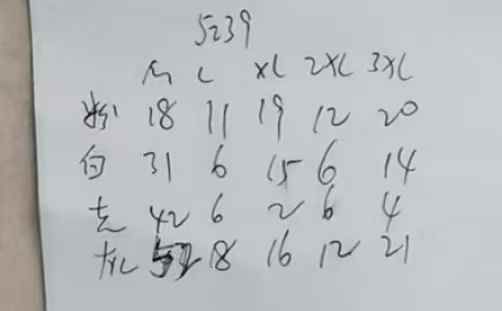 5239
M L XL 2XL 3XL
粉 18 11 19 12 20
白 31 6 15 6 14
42 6 2 6 4
18 16 12 21